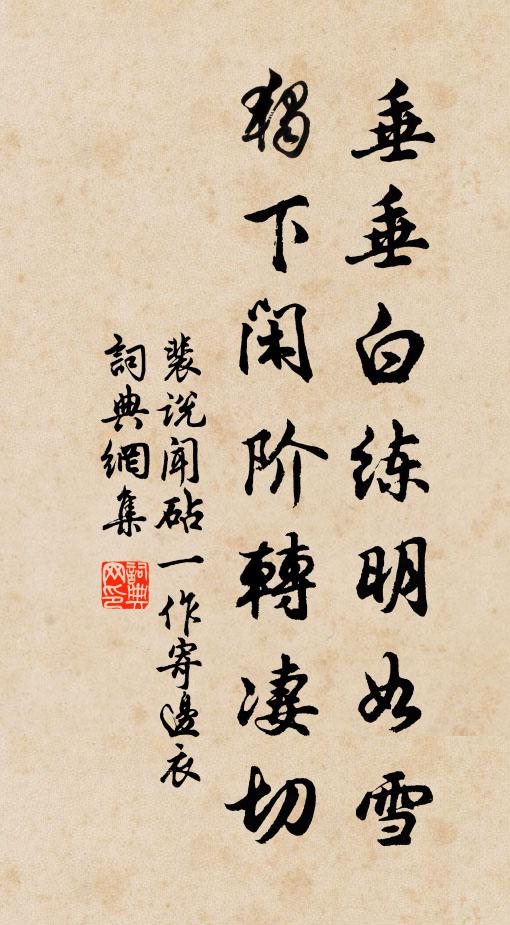 垂垂白练明如雪
獨下闲阶轉凄切
裴说闻砧一作寄邊衣
詞典網集
詞典网印